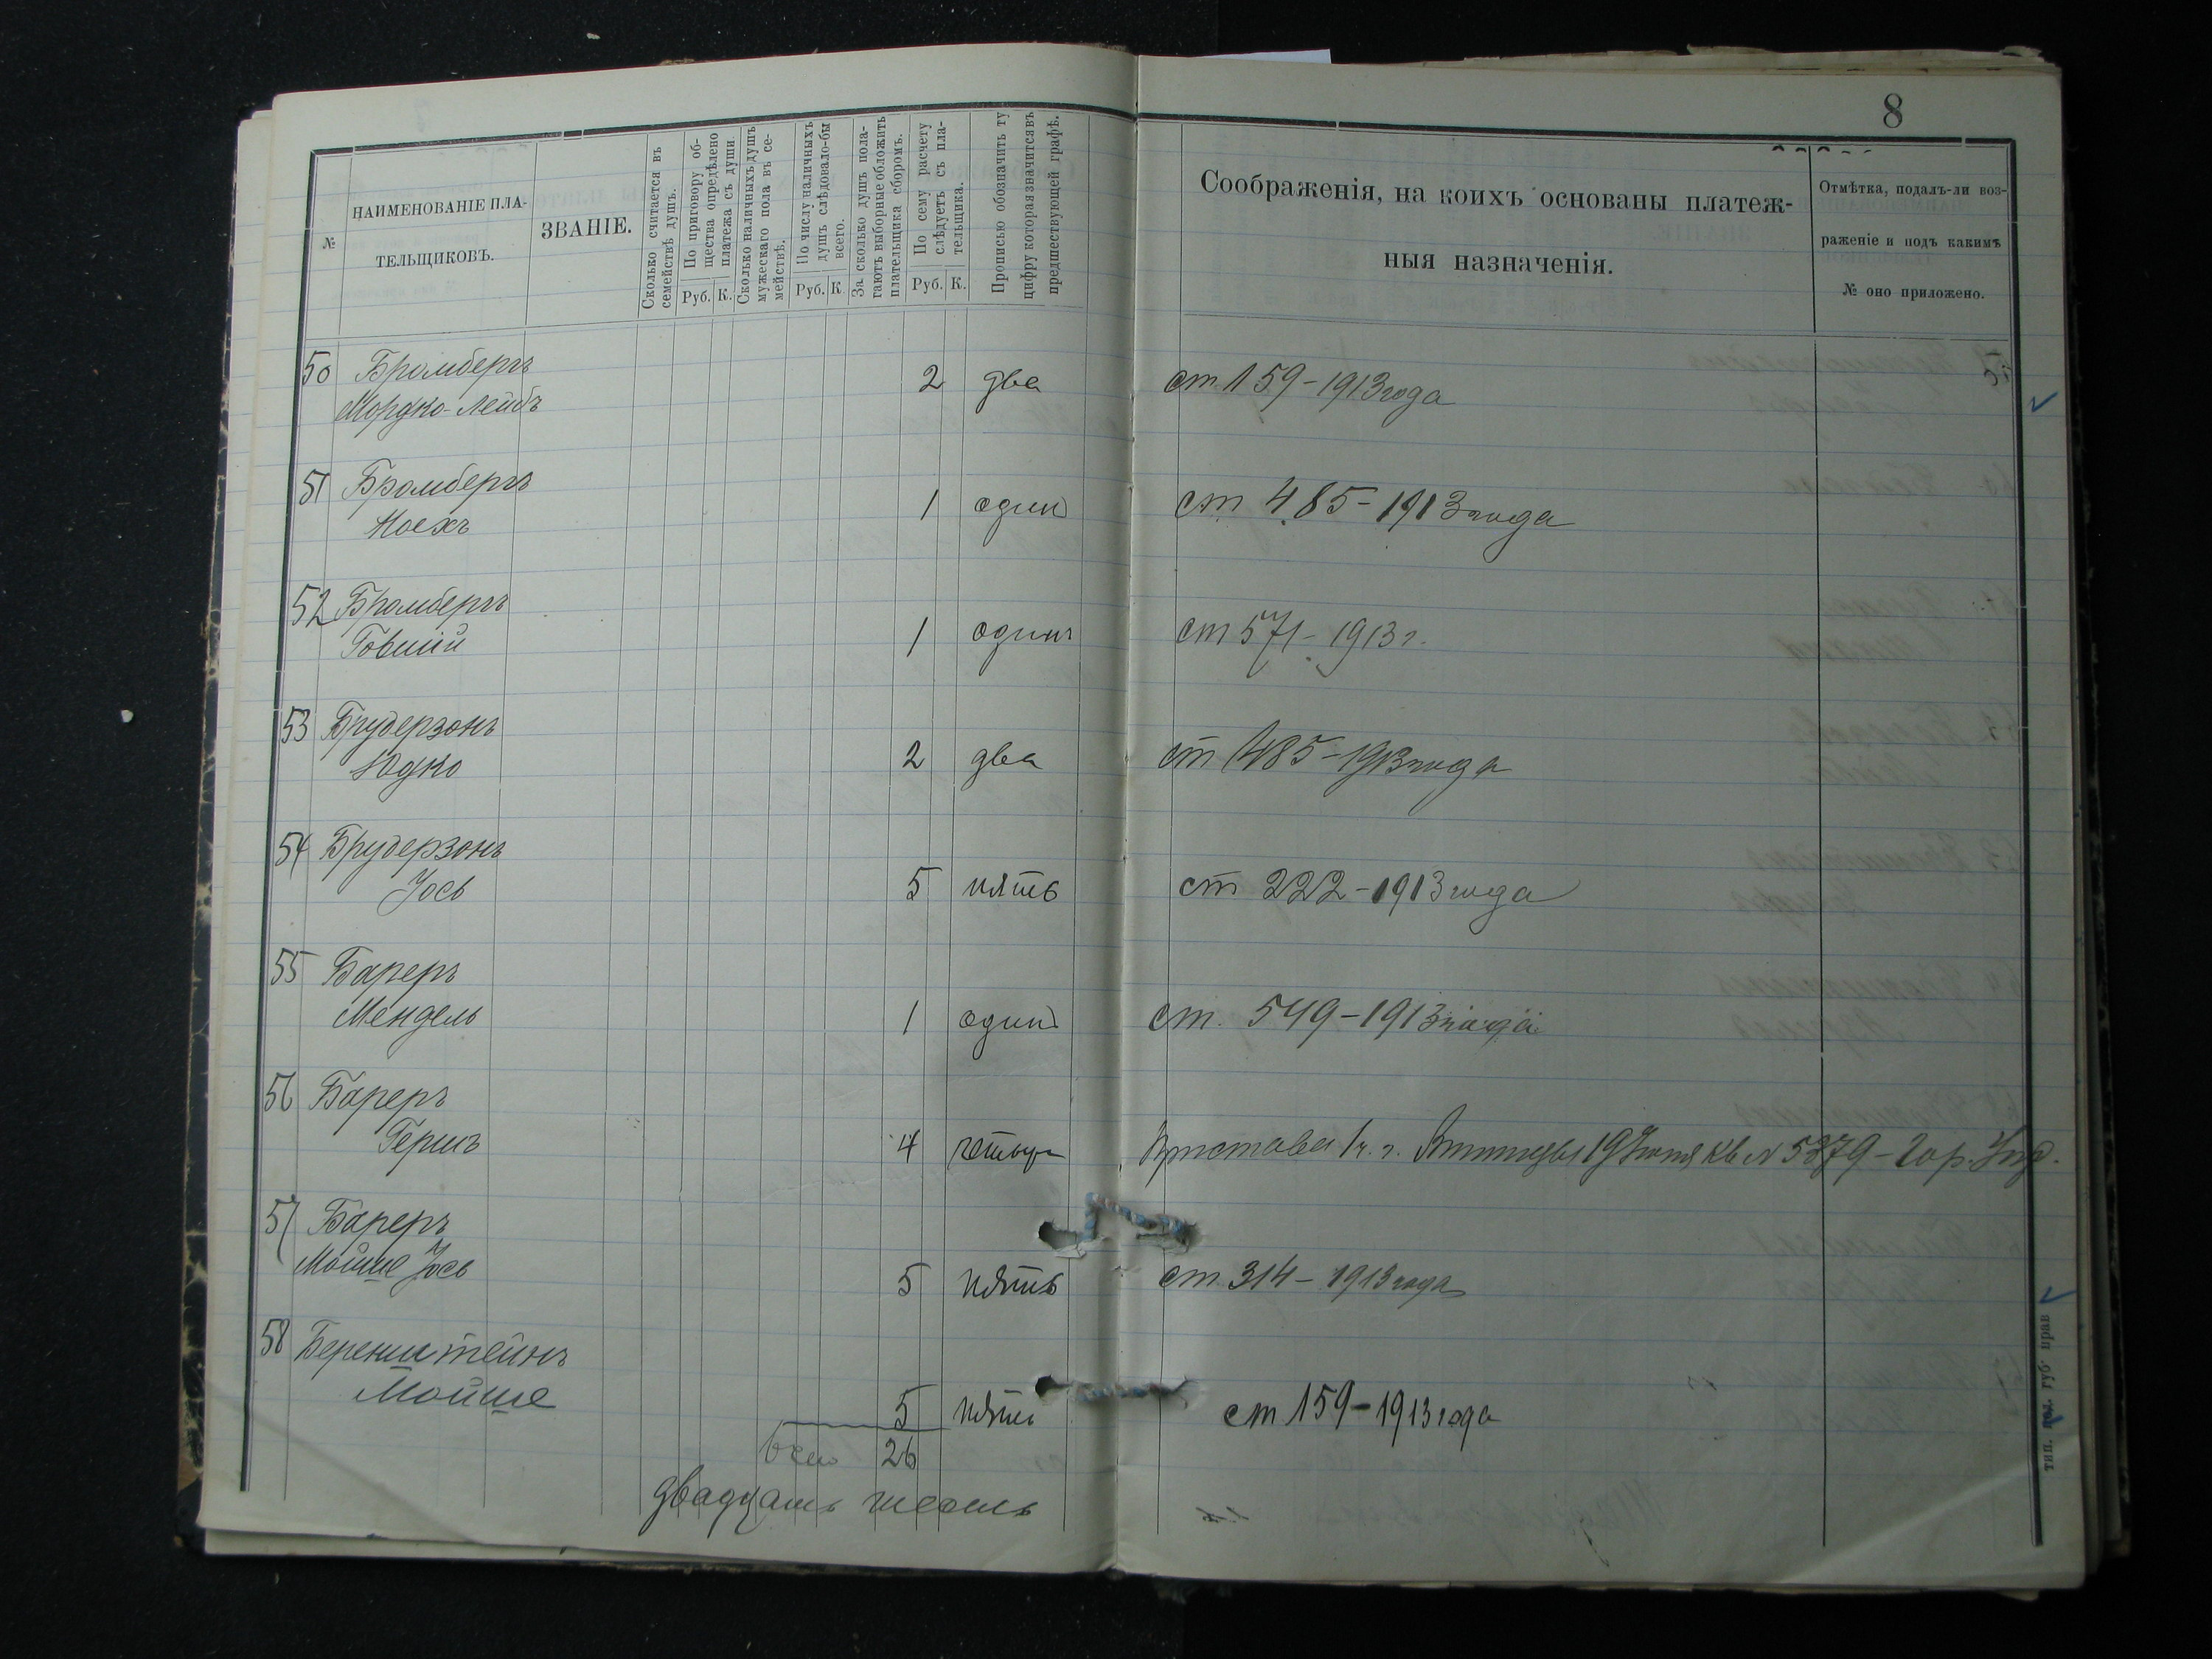 8
№
НАИМЕНОВАНІЕ ПЛА-
ТЕЛЬЩИКОВЪ.
ЗВАНІЕ.
Сколько считается въ
семействѣ душъ.
По приговору об-
щества опредѣлено
платежа съ души.
Руб. К.
Сколько наличныхъ душъ
мужескаго пола въ се-
мействѣ.
По числу наличныхъ
душъ слѣдовало-бы
всего.
Руб. К.
За сколько душъ пола-
гаютъ выборные обложить
плательщика сборомъ.
По сему расчету
слѣдуетъ съ пла-
тельщика.
Руб. К.
Прописью обозначить ту
цифру которая значится въ
предшествующей графѣ.
Соображенія, на коихъ основаны платеж-
ныя назначенія.
Отмѣтка, подалъ-ли воз-
раженіе и подъ какимъ
№ оно приложено.
50 Бромбергъ
Мордко-Лейбъ 2 два ст. 159-1913 года
51 Бромбергъ
Ноехъ 1 один ст 485-1913 года
52 Бромбергъ
Говшій 1 одинъ ст 571-1913 г.
53 Брудерзонъ
Юдко 2 два ст 485-1913 года
54 Брудерзонъ
Іось 5 пять ст 222-1913 года
55 Бареръ
Мендель 1 один ст. 549-1913 года
56 Бареръ
Гершъ 4 четыре Пристава 1 ч. г. Винницы 19 Іюня кв № 5279 - Гор. Упр.
57 Бареръ
Мойше Іось 5 пять ст 314-1913 года
58 Беренштейнъ
Мойше 5 пять ст 159-1913 года
всего 26
двадцать шесть
тип. под. губ. прав